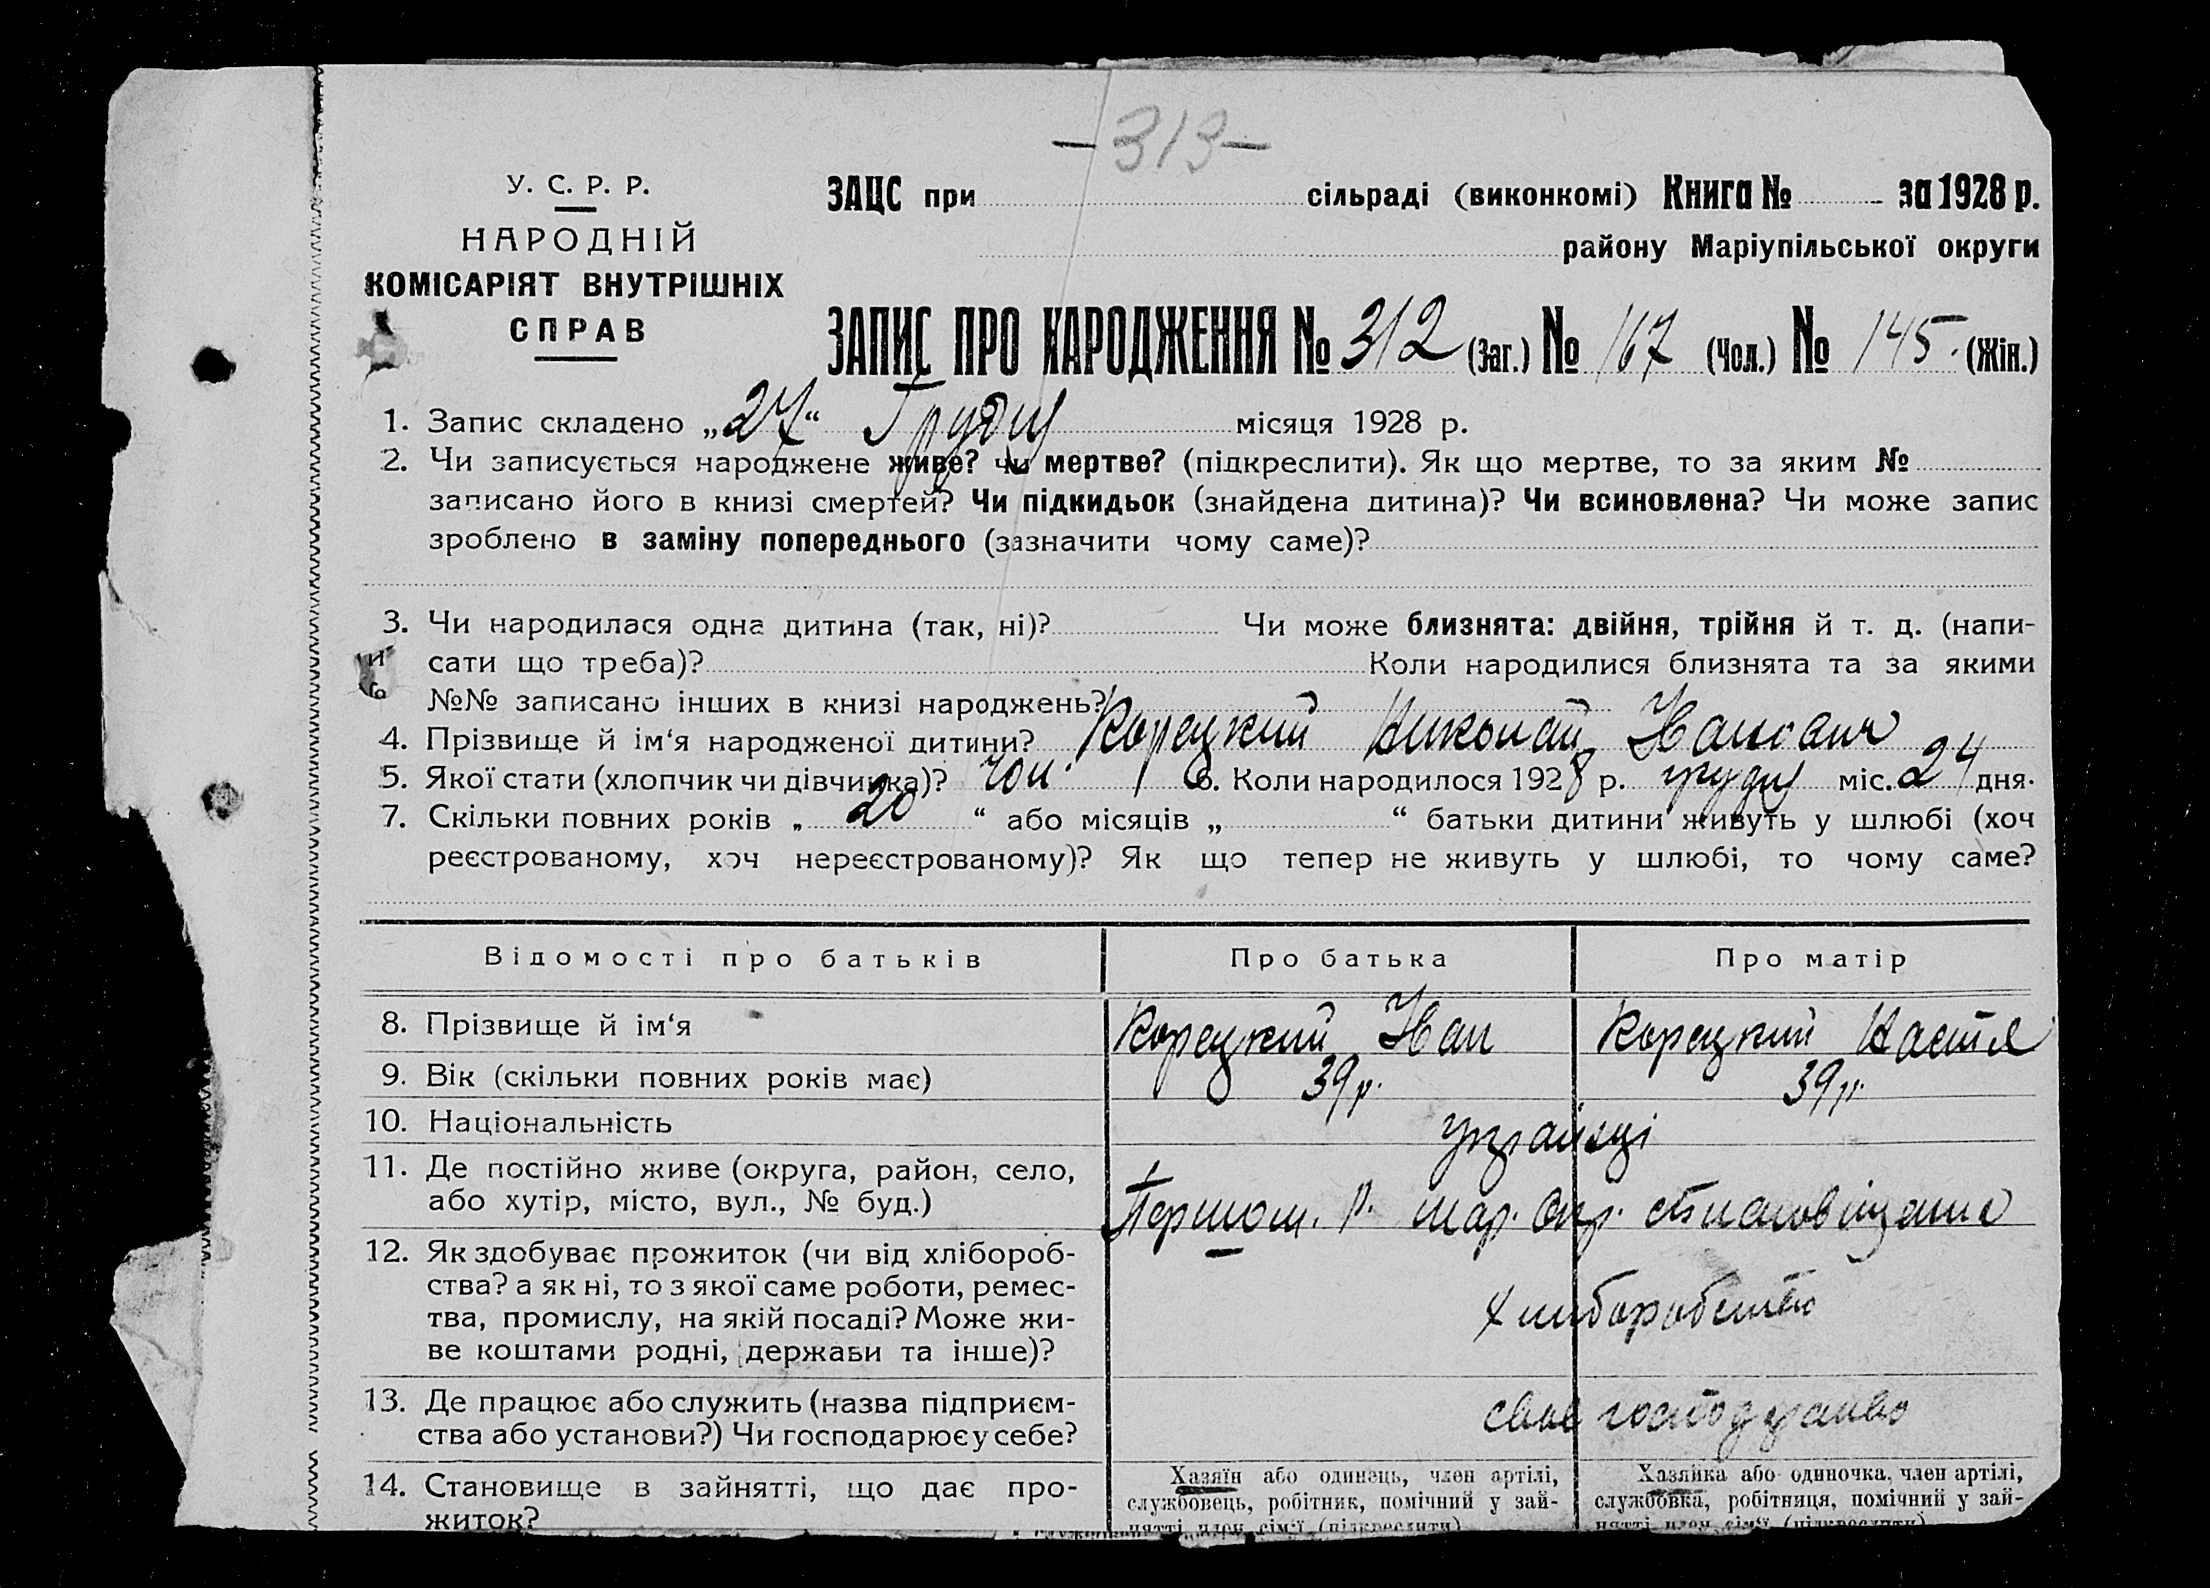 -313-
У. С. Р. Р.
НАРОДНІЙ
КОМІСАРІЯТ ВНУТРІШНІХ
СПРАВ
ЗАЦС при сільраді (виконкомі) Книга № за 1928 р.
району Маріупільської округи
ЗАПИС ПРО НАРОДЖЕННЯ № 312 (Заг.) № 167 (Чол.) № 145. (Жін.)
1. Запис складено „27“ Грудня місяця 1928 р.
2. Чи записується народжене живе? чи мертве? (підкреслити). Як що мертве, то за яким №
записано його в книзі смертей? Чи підкидьок (знайдена дитина)? Чи всиновлена? Чи може запис
зроблено в заміну попереднього (зазначити чому саме)?
3. Чи народилася одна дитина (так, ні)? Чи може близнята: двійня, трійня й т. д. (напи-
сати що треба)? Коли народилися близнята та за якими
№№ записано інших в книзі народжень?
4. Прізвище й ім‘я народженої дитини? Корецкий Николай Иванович
5. Якої стати (хлопчик чи дівчинка)? Чол. 6. Коли народилося 1928 р. грудня міс. 24 дня.
7. Скільки повних років „ 20 “ або місяців „ “ батьки дитини живуть у шлюбі (хоч
реєстрованому, хоч нереєстрованому)? Як що тепер не живуть у шлюбі, то чому саме?
Відомості про батьків Про батька Про матір
8. Прізвище й ім‘я Корецкий Иван Корецкий Настя
9. Вік (скільки повних років має) 39 р. 39 р.
10. Національність українці
11. Де постійно живе (округа, район, село,
або хутір, місто, вул., № буд.) Першот. р. Мар. Окр.
12. Як здобуває прожиток (чи від хлібороб-
ства? а як ні, то з якої саме роботи, ремес-
тва, промислу, на якій посаді? Може жи-
ве коштами родні, держави та інше)? Хлиборобство
13. Де працює або служить (назва підприєм-
ства або установи?) Чи господарює у себе? своє господарство
14. Становище в зайнятті, що дає про-
житок?
Хазяїн або одинець, член артілі,
службовець, робітник, помічний у зай-
нятті член сім‘ї (підкреслити)
Хазяйка або одиночка, член артілі,
службовка, робітниця, помічний у зай-
нятті член сім‘ї (підкреслити)